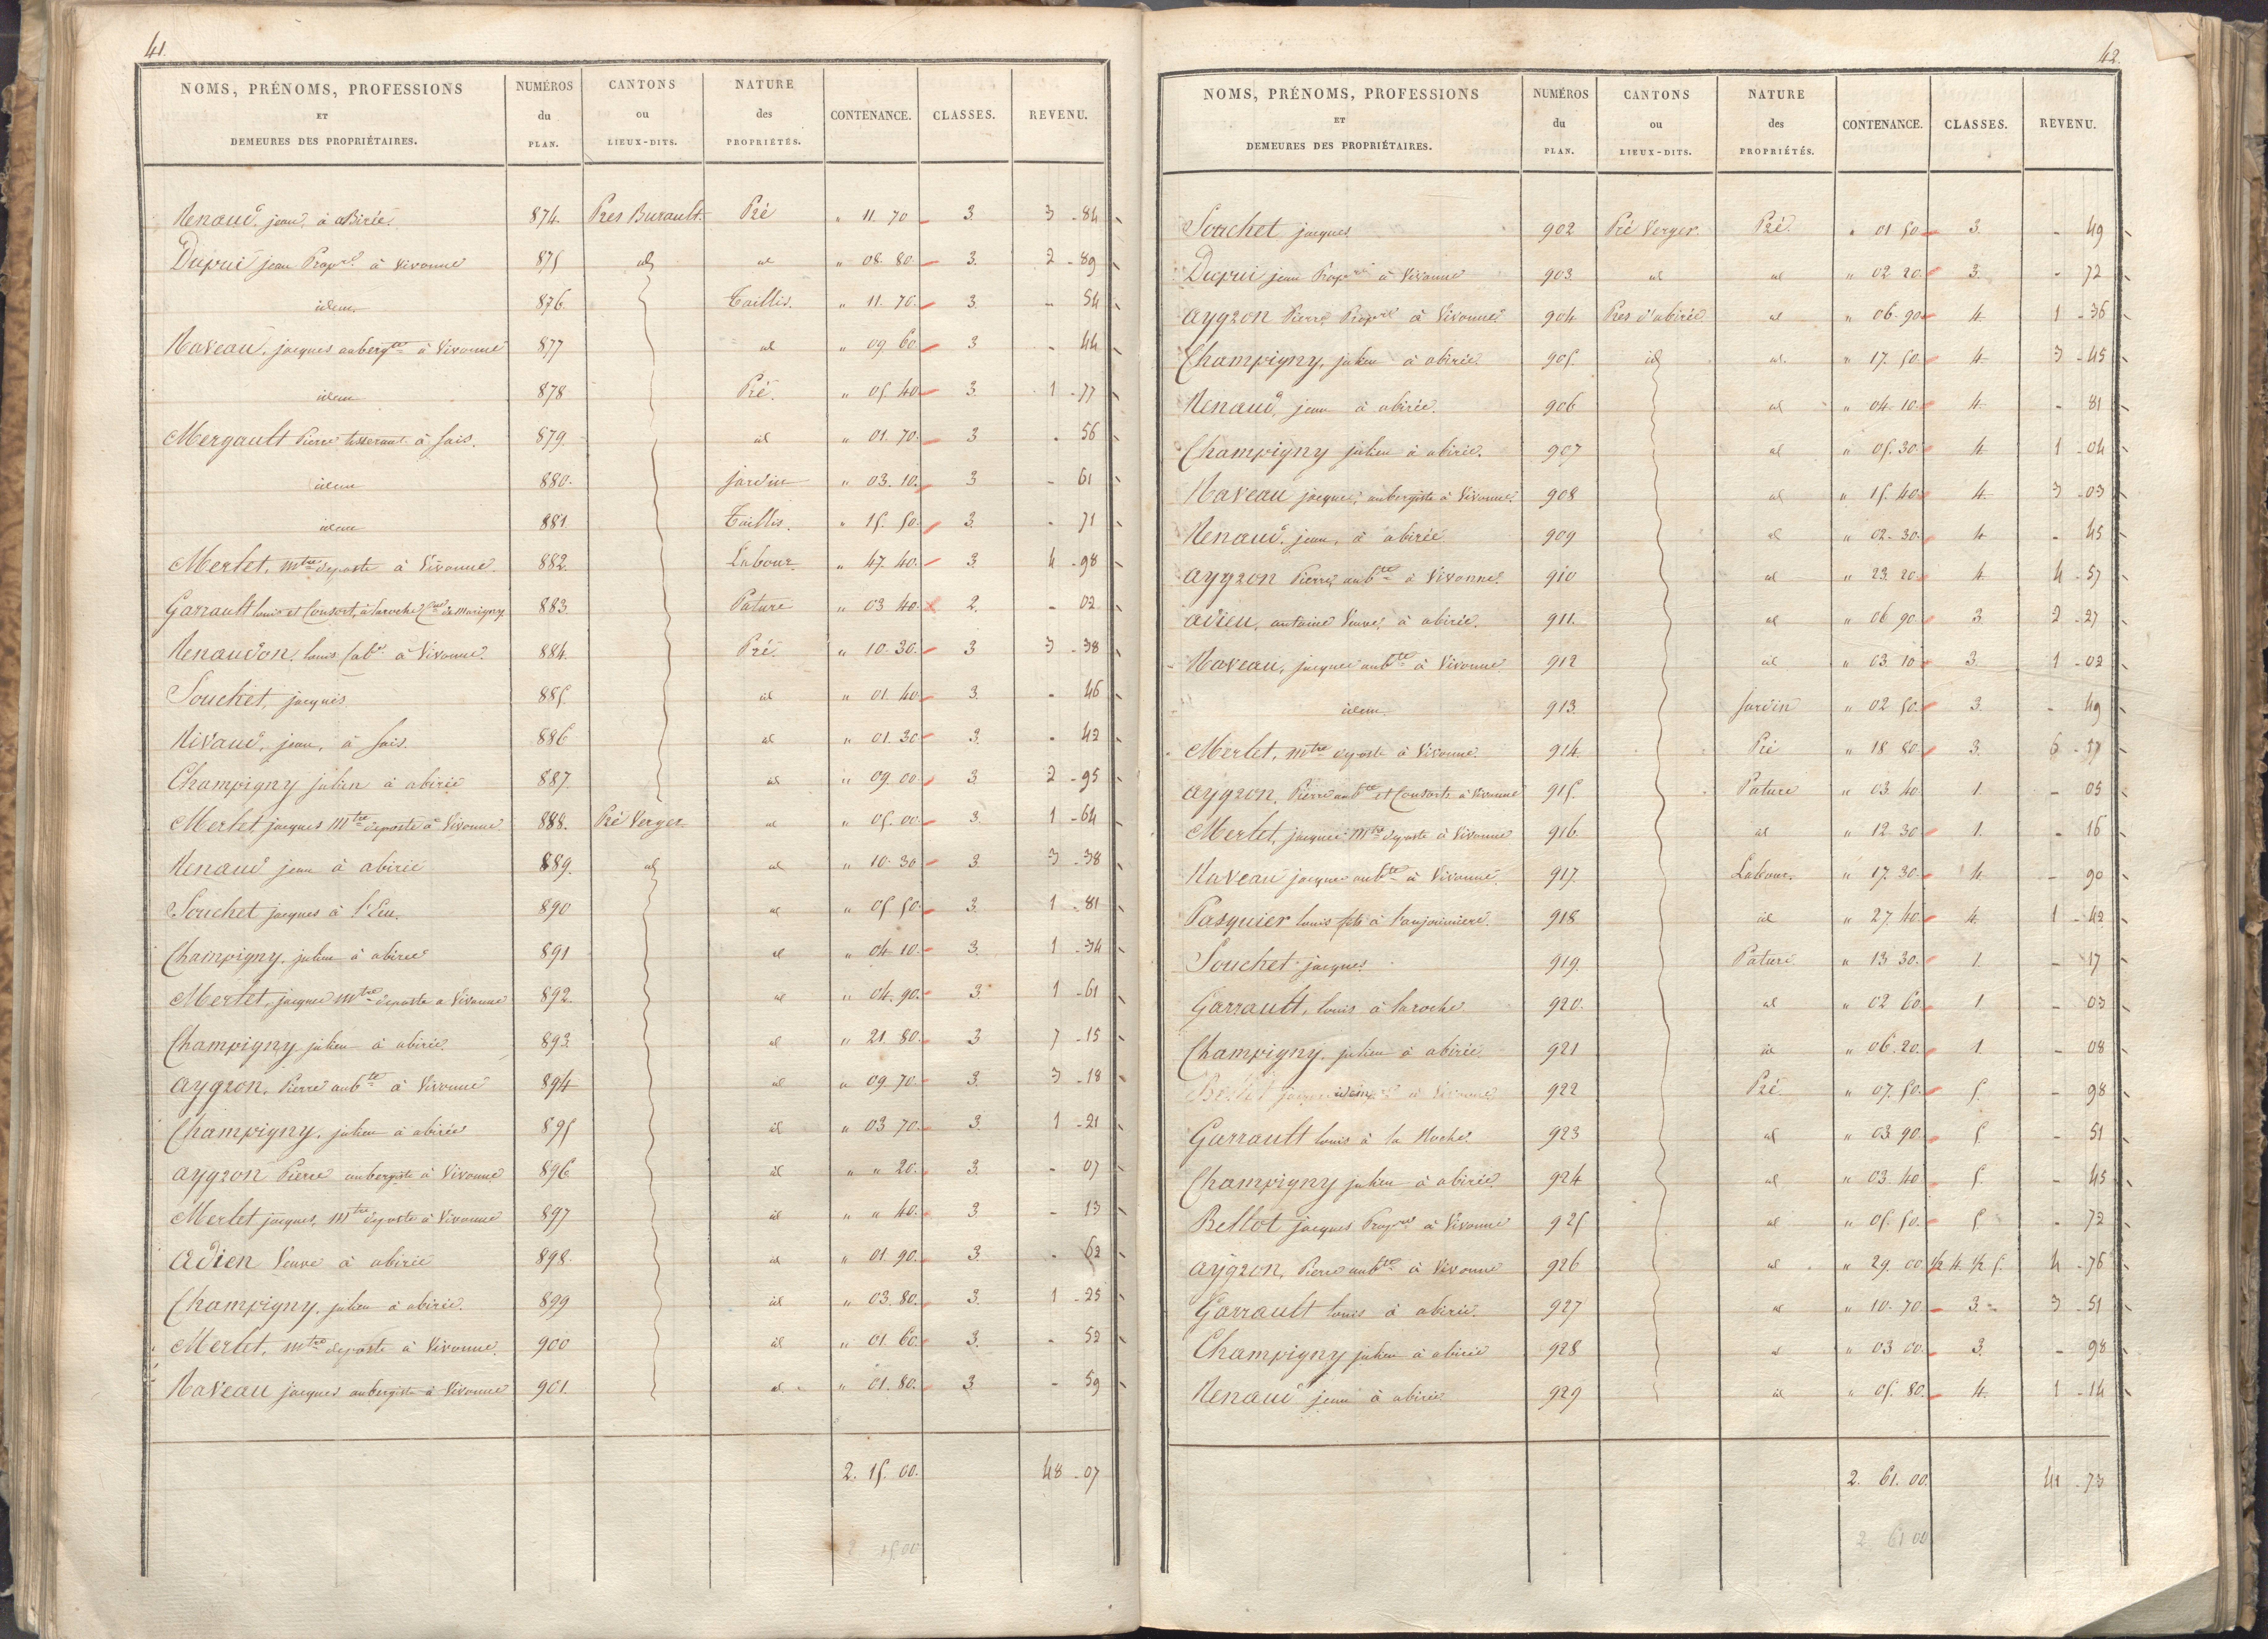 41.
NOMS, PRÉNOMS, PROFESSIONS ET DEMEURES DES PROPRIÉTAIRES. NUMÉROS du PLAN. CANTONS ou LIEUX-DITS. NATURE des PROPRIÉTÉS. CONTENANCE. CLASSES. REVENU.
Renaud, jean, à abirée. 874. Prés Burault Pré " 11. 70 3 3 - 84
Dupui jean Propre. à Vivonne 875 id id " 08. 80. 3. 2 - 89
idem. 876 Taillis. " 11. 70. 3. - 54
Naveau, jacques aubergte à Vivonne 877 id " 09 60. 3 - 44
idem 878 Pré. " 05 40 3. 1 - 77
Mergault Pierre tisserant à fais. 879. id " 01. 70. 3 - 56
idem 880. jardin " 03. 10. 3 - 61
idem 881. Taillis. " 15. 50. 3. - 71
Merlet, mtre deposte à Vivonne. 882. Labour. " 47. 40. 3 4 - 98
Garrault louis et Consort, à laroche Cne de Marigny 883. Pature " 03 40. 2. - 02
Renaudon, louis Cabr. à Vivonne. 884. Pré. " 10. 30. 3 3 - 38
Souchet, jacques 885. id " 01. 40. 3. - 46
Nivaud, jean, à fais. 886 id " 01. 30 3. - 42
Champigny julien à abirée 887. id " 09. 00 3. 2 - 95
Merlet jacques Mtre deposte à Vivonne 888. Pré Verger id " 05. 00 3. 1 - 64
Renaud jean à abirée 889. id id " 10. 30 3 3 - 38
Souchet jacques à 890 id " 05 50. 3. 1 - 81
Champigny, julien à abirée 891 id " 04 10. 3. 1 - 34
Merlet, jacques mtre deposte à Vivonne 892. id " 04. 90. 3. 1 - 61
Champigny julien à abirée. 893. id " 21 80. 3 7 - 15
aygron, Pierre aubte à Vivonne 894 id " 09. 70. 3. 3 - 18
Champigny, julien à abirée 895 id " 03 70. 3. 1 - 21
aygron Pierre aubergiste à Vivonne 896 id " " 20. 3. - 07
Merlet jacques, mtre deposte à Vivonne 897 id " " 40. 3 - 13
adien Veuve à abirée 898. id " 01. 90. 3. - 62
Champigny, julien à abirée. 899 id " 03. 80. 3. 1 - 25
Merlet, mtre deposte à Vivonne. 900 id " 01. 60. 3. - 52
Naveau jacques aubergiste à Vivonne 901. id " 01. 80. 3 - 59
2. 15. 00. 48 - 07
2 15 00
42.
NOMS, PRÉNOMS, PROFESSIONS ET DEMEURES DES PROPRIÉTAIRES. NUMÉROS du PLAN. CANTONS ou LIEUX-DITS. NATURE des PROPRIÉTÉS. CONTENANCE. CLASSES. REVENU.
Souchet jacques 902 Pré Verger. Pré. " 01 50 3. - 49
Dupui jean Propre à Vivonne 903. id id " 02. 20. 3. - 72
aygron Pierre Propre à Vivonne 904 Prés d'abirée id " 06. 90 4. 1 - 36
Champigny, julien à abirée. 905. id id " 17. 50. 4. 3 - 45
Renaud, jean à abirée. 906 id " 04. 10. 4. - 81
Champigny julien à abirée. 907 id " 05. 30. 4 1 - 04
Naveau jacques, aubergiste à Vivonne 908 id " 15. 40. 4. 3 - 03
Renaud, jean, à abirée 909 id " 02. 30. 4 - 45
aygron Pierre aubte à Vivonne. 910 id " 23. 20. 4. 4 - 57
adieu, antoine Veuve, à abirée. 911. id " 06 90. 3 2 - 27
Naveau, jacques aubte à Vivonne 912 id " 03 10 3. 1 - 02
idem. 913. Jardin " 02 50. 3. - 49
Merlet, mtre deposte à Vivonne. 914. Pré " 18 80. 3. 6 - 17
aygron, Pierre aubte et Consorts à Vivonne 915. Pature " 03. 40 1. - 05
Merlet, jacques mtre deposte à Vivonne 916 id " 12. 30 1. - 16
Naveau jacques aubte à Vivonne. 917. Labour. " 17. 30. 4. - 90
Pasquier louis fils à l'anjouiniere. 918 id " 27. 40. 4. 1 - 42
Souchet jacques 919. Pature " 13 30. 1. - 17
Garrault, louis à laroche 920. id " 02 60. 1. - 03
Champigny julien à abirée 921 id " 06. 20. 1. - 08
idem 922 Pré. " 07. 50. 5. - 98
Garrault louis à la Roche. 923 id " 03. 90. 5 - 51
Champigny julien à abirée 924 id " 03. 40 5 - 45
Bellot jacques Propre à Vivonne 925 id " 05. 50. 5 - 72
aygron, Pierre aubte à Vivonne 926 id " 29. 00 1/2 4. 1/2 5. 4 - 76
Garrault louis à abirée. 927 id " 10. 70 3. 3 - 51
Champigny julien à abirée 928 id " 03 00. 3. - 98
Renaud jean à abirée 929 id " 05. 80. 4. 1 - 14
2. 61. 00. 41 - 73
2 61 00